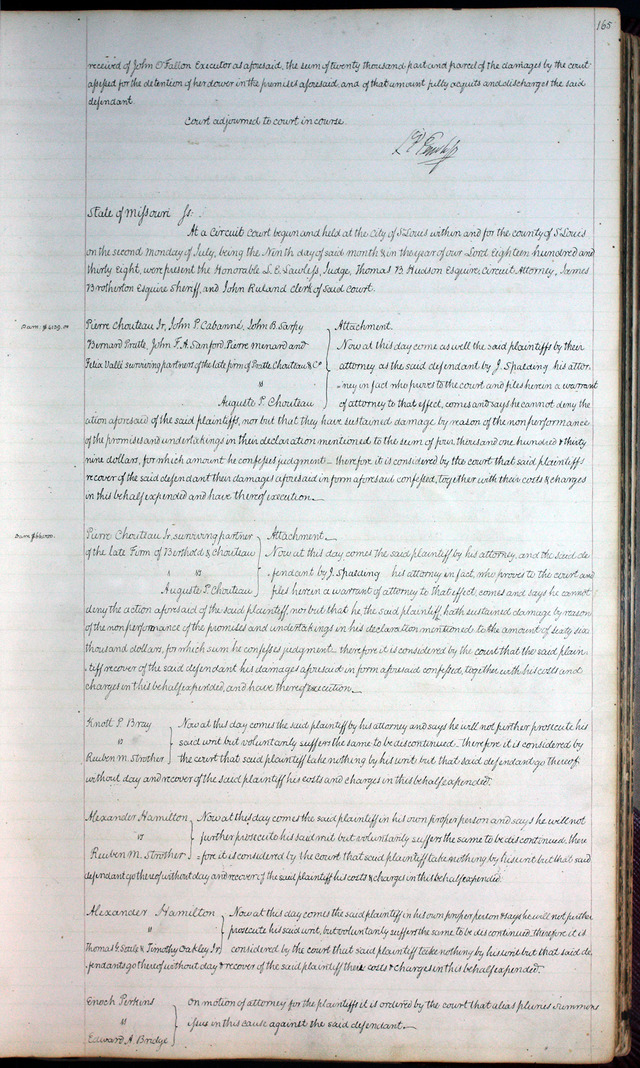 165
received of John O'Fallon Executor as aforesaid, the sum of twenty thousand part and parcel of the damages by the court
assessed for the detention of her dower in the premises aforesaid, and of that amount fully acquits and discharges the said
defendant.
Court adjourned to court in course.
State of Missouri
At a Circuit Court begun and held at the City of St Louis within and for the county of St Louis
on the second Monday of July, being the Ninth day of said month & in the year of our Lord Eighteen hundred and
thirty Eight, were present the Honorable L. E. Lawless, Judge, Thomas B Hudson Esquire, Circuit Attorney, James
Brotherton Esquire Sheriff, and John Ruland Clerk of said Court.
Pierre Chouteau Jr, John P. Cabanné, John B. Sarpy Attachment.
Bernard Pratte, John F. A. Sanford, Pierre Menard and Now at this day come as well the said plaintiffs by their
Felix Valli surviving partners of the late firm of Pratte, Chouteau & Co attorney as the said defendant by J. Spalding his attor
vs -ney in fact who proves to the court and files herein a warrant
Auguste P. Chouteau of attorney to that effect, comes and says he cannot deny the
action aforesaid of the said plaintiffs, nor but that they have sustained damage by reason of the nonperformance
of the promises and undertakings in their declaration mentioned to the sum of four thousand one hundred & thirty
nine dollars, for which amount he confesses judgment – therefore it is considered by the court that said plaintiffs
recover of the said defendant their damages aforesaid in form aforesaid confessed, together with their costs & charges
in this behalf expended and have thereof execution.
Pierre Chouteau Jr, surviving partner Attachment –
of the late Firm of Berthold & Chouteau Now at this day comes the said plaintiff by his attorney, and the said de
vs -fendant by J. Spalding his attorney in fact, who proves to the court and
Auguste P. Chouteau files herein a warrant of attorney to that effect, comes and says he cannot
deny the action aforsaid of the said plaintiff, nor but that he, the said plaintiff, hath sustained damage by reason
of the nonperformance of the promises and undertakings in his declaration mentioned to the amount of sixty six
thousand dollars, for which sum he confesses judgment – therefore it is considered by the court that the said plain
-tiff recover of the said defendant his damages aforesaid in form aforesaid confessed, together with his costs and
charges in this behalf expended, and have thereof execution.
Knott P. Bray Now at this day comes the said plaintiff by his attorney and says he will not further prosecute his
vs said writ but voluntarily suffers the same to be discontinued – therefore it is considered by
Reuben M. Strother the court that said plaintiff take nothing by his writ but that said defendant go thereof
without day and recover of the said plaintiff his costs and charges in this behalf expended.
Alexander Hamilton Now at this day comes the said plaintiff in his own proper person and says he will not
vs further prosecute his said writ but voluntarily suffers the same to be discontinued, there
Reuben M. Strother -fore it is considered by the court that said plaintiff take nothing by his writ but that said
defendant go thereof without day and recover of the said plaintiff his costs & charges in this behalf expended.
Alexander Hamilton Now at this day comes the said plaintiff in his own proper person & says he will not further
vs prosecute his said writ, but voluntarily suffers the same to be discontinued, therefore it is
Thomas G. Settle & Timothy Oakley Jr considered by the court that said plaintiff take nothing by his writ but that said de
-fendants go thereof without day & recover of the said plaintiff their costs & charges in this behalf expended.
Enoch Perkins On motion of attorney for the plaintiffs it is ordered by the court that alias pluries summons
vs issue in this cause against the said defendant.
Edward A. Bridge